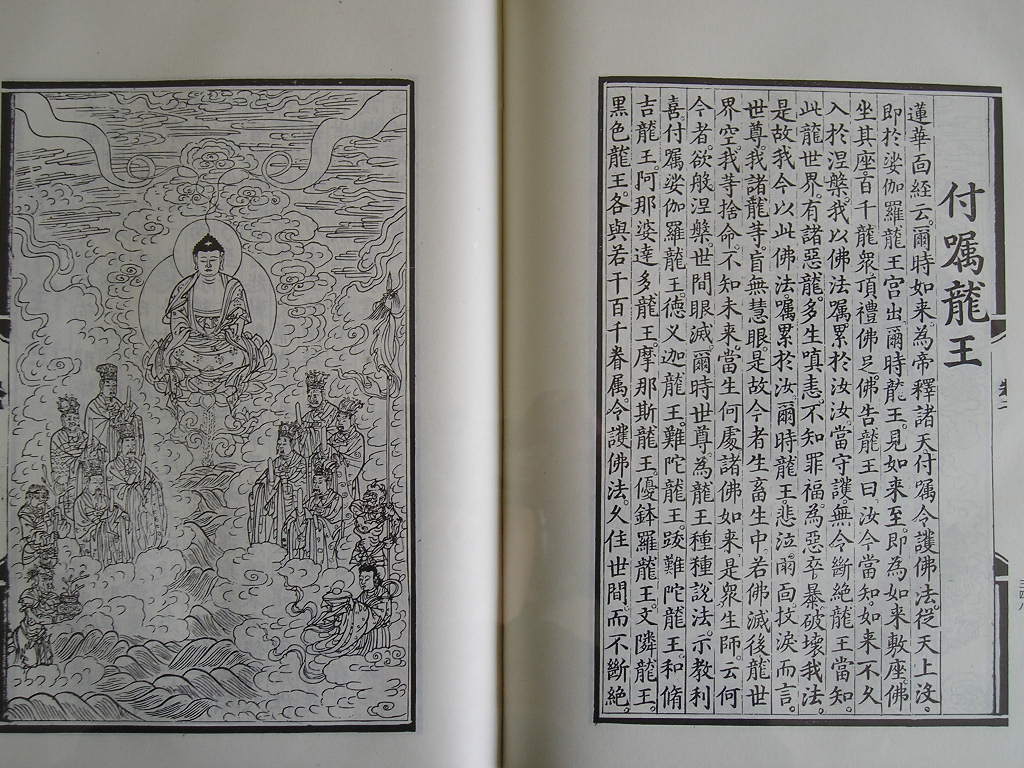 付嘱龍王
蓮華面經云。爾時如来。為帝釋諸天付嘱令護佛法。從天上没。
即於娑伽羅龍王宫出爾時龍王。見如来至。即為如来敷座。佛
坐其座。百千龍衆頂禮佛足佛告龍王曰。汝今當知。如来不久
入於涅槃。我以佛法嘱累於汝。汝當守護。無令斷絶龍王當知。
此龍世界。有諸惡龍。多生嗔恚。不知罪福。為惡卒暴。破壊我法。
是故我今以此佛法。嘱累於汝。爾時龍王悲泣雨面。抆淚而言。
世尊。我諸龍等。盲無慧眼。是故今者生畜生中。若佛滅後。龍世
界空。我等捨命。不知未来當生何處。諸佛如来是衆生師。云何
今者。欲般涅槃。世間眼滅。爾時世尊。為龍王種種說法。示教利
喜。付嘱娑伽羅龍王。德义迦龍王。難陀龍王。跋難陀龍王。和脩
吉龍王。阿那婆達多龍王。摩那斯龍王。優鉢羅龍王。文隣龍王。
黒色龍王。各與若干百千眷属。令護佛法。久住世間。而不斷絶。
卷二